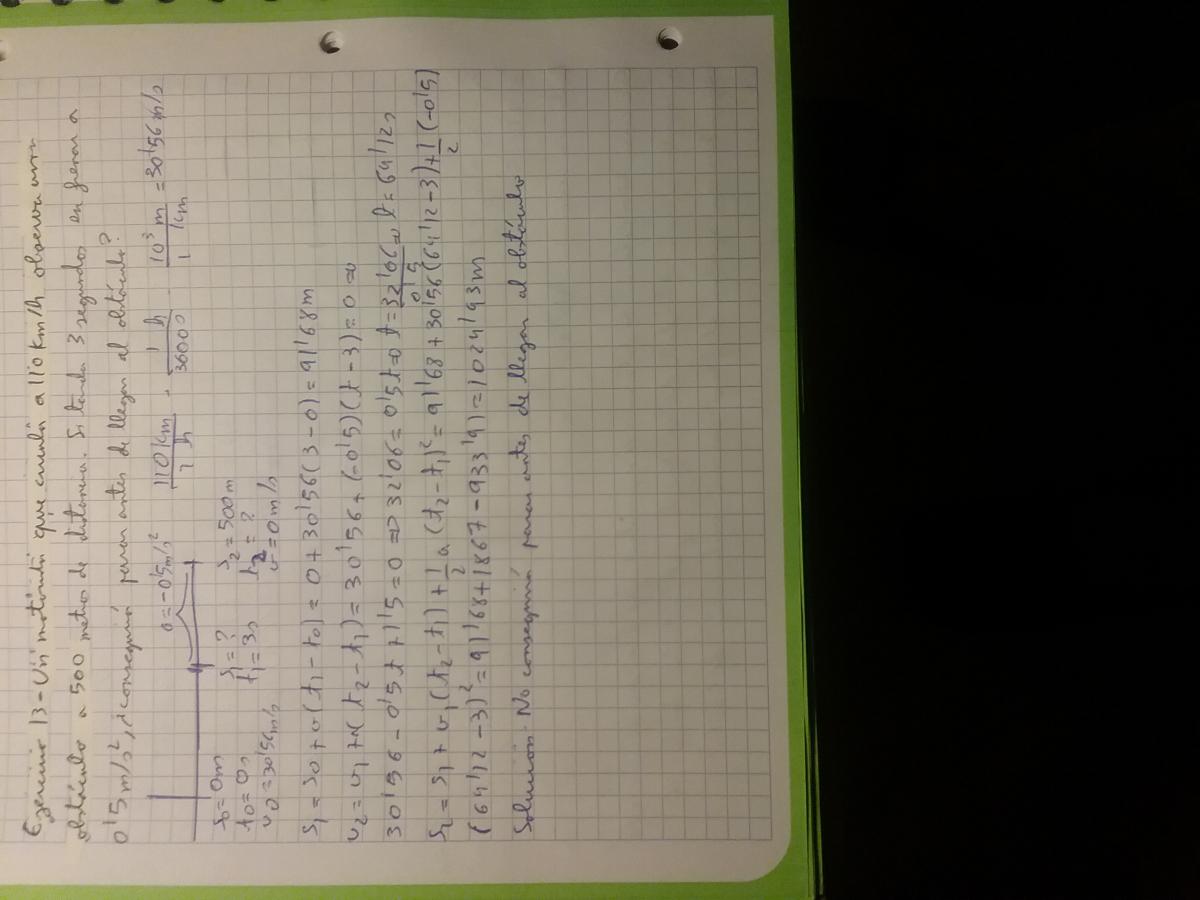 Ejercicio 13 - Un motorista que circula a 110 km/h observa un
obstáculo a 500 metros de distancia. Si tarda 3 segundos en frenar a
0'5 m/s², ¿conseguirá parar antes de llegar al obstáculo?
a = -0'5 m/s² 110 km / 1 h · 1 h / 3600 · 10³ m / 1 km = 30'56 m/s
s0 = 0m s1 = ? s2 = 500 m
t0 = 0s t1 = 3s t2 = ?
v0 = 30'56 m/s v = 0 m/s
s1 = s0 + v(t1 - t0) = 0 + 30'56(3 - 0) = 91'68 m
v2 = v1 + a(t2 - t1) = 30'56 + (-0'5)(t - 3) = 0 ⇒
30'56 - 0'5t + 1'5 = 0 ⇒ 32'06 = 0'5t ⇒ t = 32'06 / 0'5 ⇒ t = 64'12s
s2 = s1 + v1(t2 - t1) + 1/2 a (t2 - t1)² = 91'68 + 30'56(64'12 - 3) + 1/2 (-0'5)
(64'12 - 3)² = 91'68 + 1867 - 933'9) = 1024'93 m
Solución: No conseguirá parar antes de llegar al obstáculo